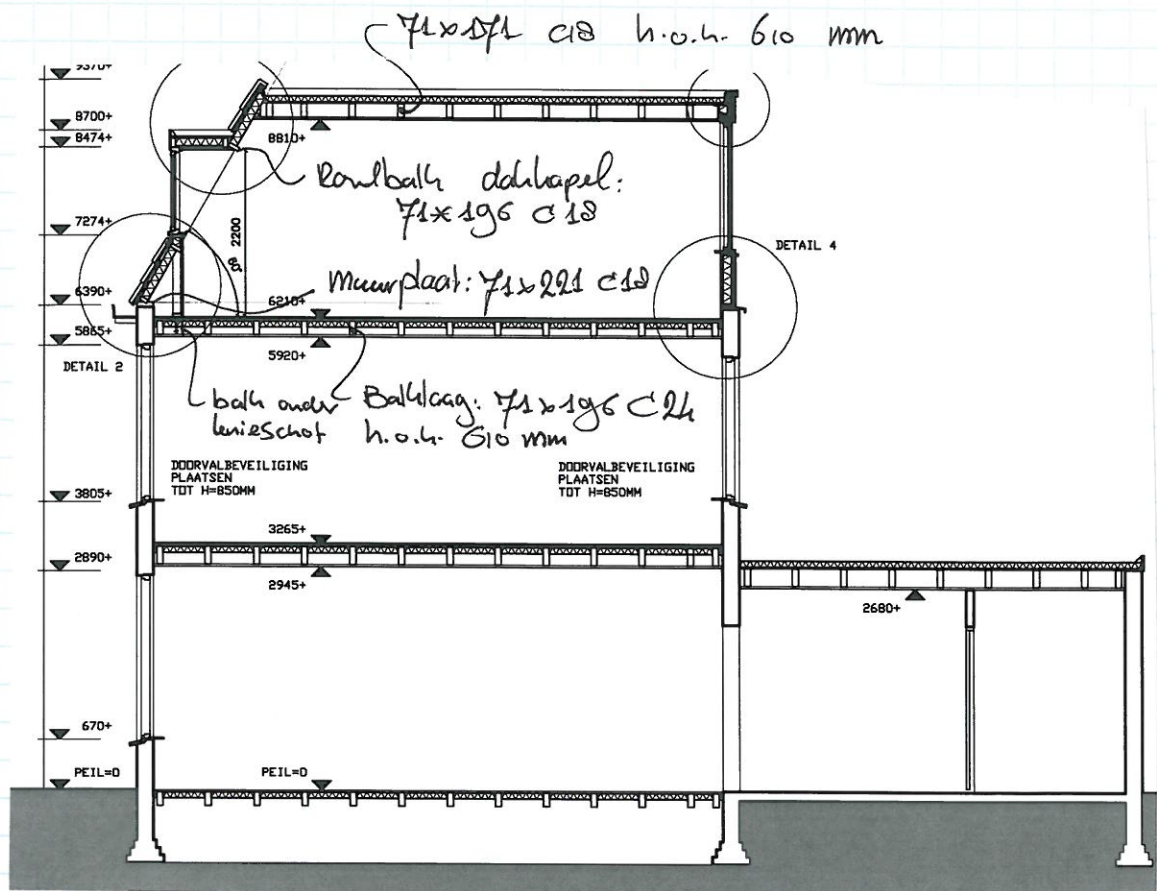 71x171 C18 h.o.h. 610 mm
9370+
8700+
8474+
8810+
Ravelbalk dakkapel:
71x196 C18
7274+
2200
DETAIL 4
muurplaat: 71x221 C18
6390+
6210+
5865+
5920+
DETAIL 2
balk onder
knieschot
Balklaag: 71x196 C24
h.o.h. 610 mm
DOORVALBEVEILIGING
PLAATSEN
TOT H=850MM
DOORVALBEVEILIGING
PLAATSEN
TOT H=850MM
3805+
3265+
2890+
2945+
2680+
670+
PEIL=0
PEIL=0